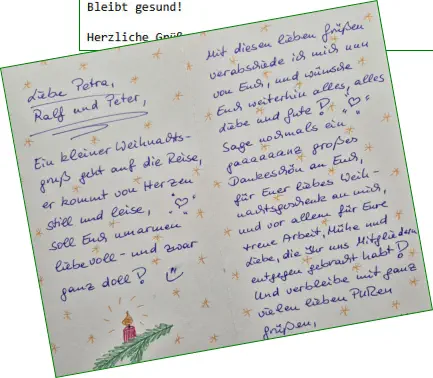 Bleibt gesund!
Herzliche Grüß
Liebe Petra,
Ralf und Peter,
Ein kleiner Weihnachts-
gruß geht auf die Reise,
er kommt von Herzen
still und leise,
soll Euch umarmen
liebevoll - und zwar
ganz doll!
Mit diesen lieben Grüßen
verabschiede ich mich nun
von Euch, und wünsche
Euch weiterhin alles, alles
Liebe und Gute!
Sage nochmals ein
gaaaaaanz großes
Dankeschön an Euch,
für Euer liebes Weih-
nachtsgeschenk an mich,
und vor allem für Eure
treue Arbeit, Mühe und
Liebe, die Ihr uns Mitgliedern
entgegen gebracht habt!
Und verbleibe mit ganz
vielen lieben
Grüßen,